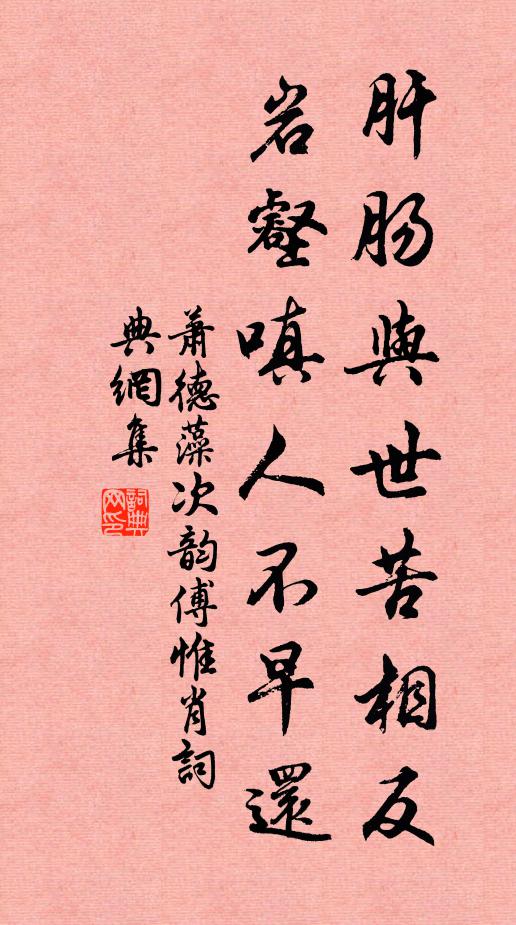 肝肠與世苦相反
岩壑嗔人不早還
萧德藻次韵傅惟肖詞
典網集
詞典網印